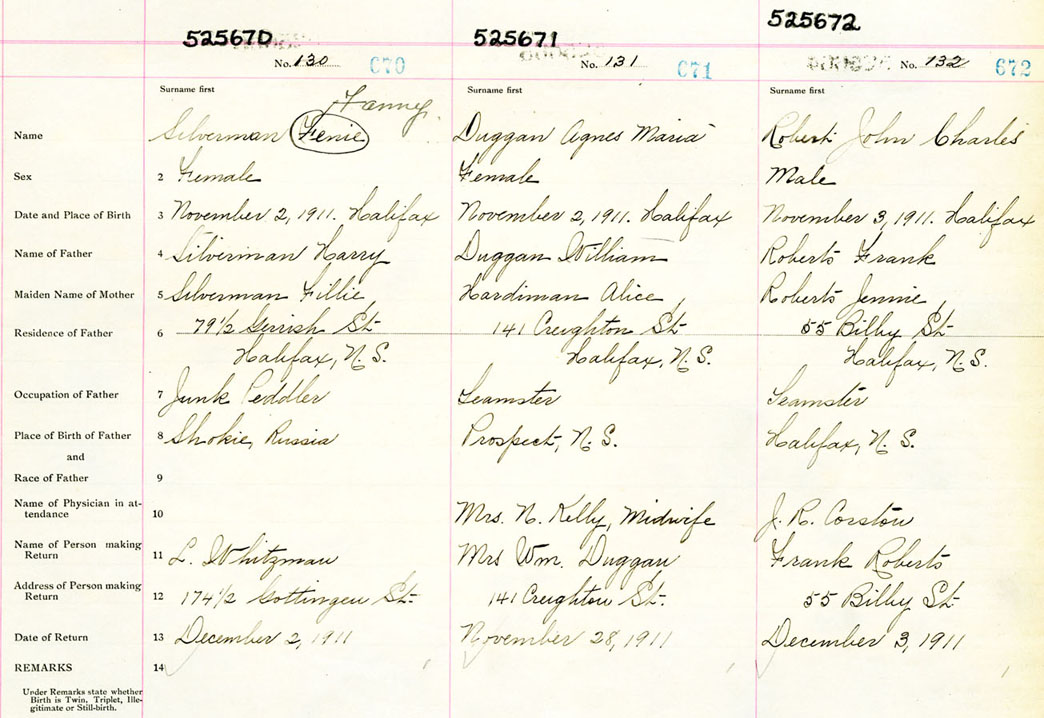 525670
525671
525672
No. 130
670
No. 131
671
No. 132
672
Surname first
Surname first
Surname first
Fanny
Name
Silverman Fenie
Duggan Agnes Maria
Robert John Charles
Sex
2 Female
Female
Male
Date and Place of Birth
3 November 2, 1911. Halifax
November 2, 1911. Halifax
November 3, 1911. Halifax
Name of Father
4 Silverman Harry
Duggan William
Roberts Frank
Maiden Name of Mother
5 Silverman Fillie
Hardiman Alice
Roberts Jennie
Residence of Father
6 79 1/2 Gerrish St
Halifax, N.S.
141 Creighton St
Halifax, N.S.
55 Bilby St
Halifax, N.S.
Occupation of Father
7 Junk Peddler
Teamster
Teamster
Place of Birth of Father
8 Shokie, Russia
Prospect, N.S.
Halifax, N.S.
and
Race of Father
9
Name of Physician in at-
tendance
10
Mrs. N. Kelly, Midwife
J. R. Corston
Name of Person making
Return
11 L. Whitzman
Mrs Wm. Duggan
Frank Roberts
Address of Person making
Return
12 174 1/2 Gottingen St.
141 Creighton St.
55 Bilby St
Date of Return
13 December 2, 1911
November 28, 1911
December 3, 1911
REMARKS
14
Under Remarks state whether
Birth is Twin, Triplet, Ille-
gitimate or Still-birth.